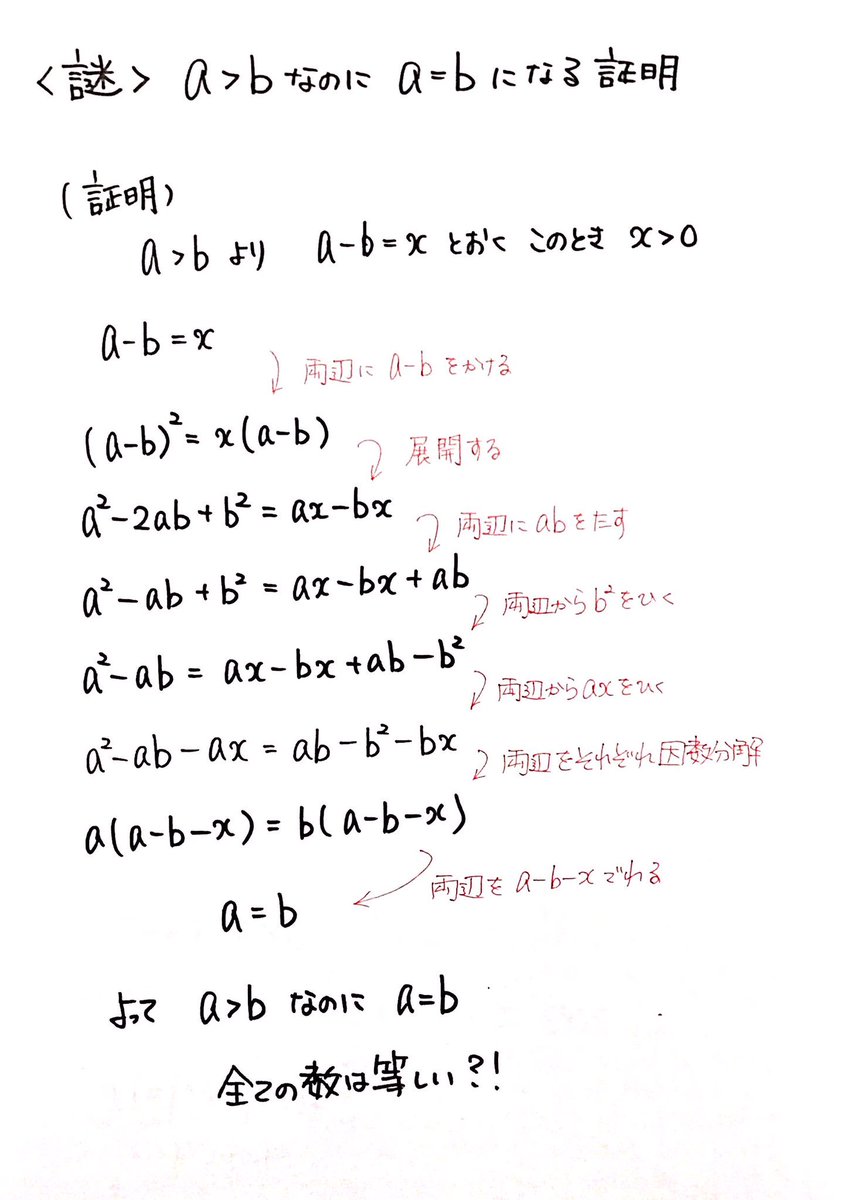 <謎> a>bなのに a=bになる証明
(証明)
a>bより a-b=xとおく このとき x>0
a-b=x
両辺に a-bをかける
(a-b)²=x(a-b)
展開する
a²-2ab+b²=ax-bx
両辺にabをたす
a²-ab+b²=ax-bx+ab
両辺からb²をひく
a²-ab=ax-bx+ab-b²
両辺からaxをひく
a²-ab-ax=ab-b²-bx
両辺をそれぞれ因数分解
a(a-b-x)=b(a-b-x)
両辺を a-b-xでわる
a=b
よって a>bなのに a=b
全ての数は等しい?!